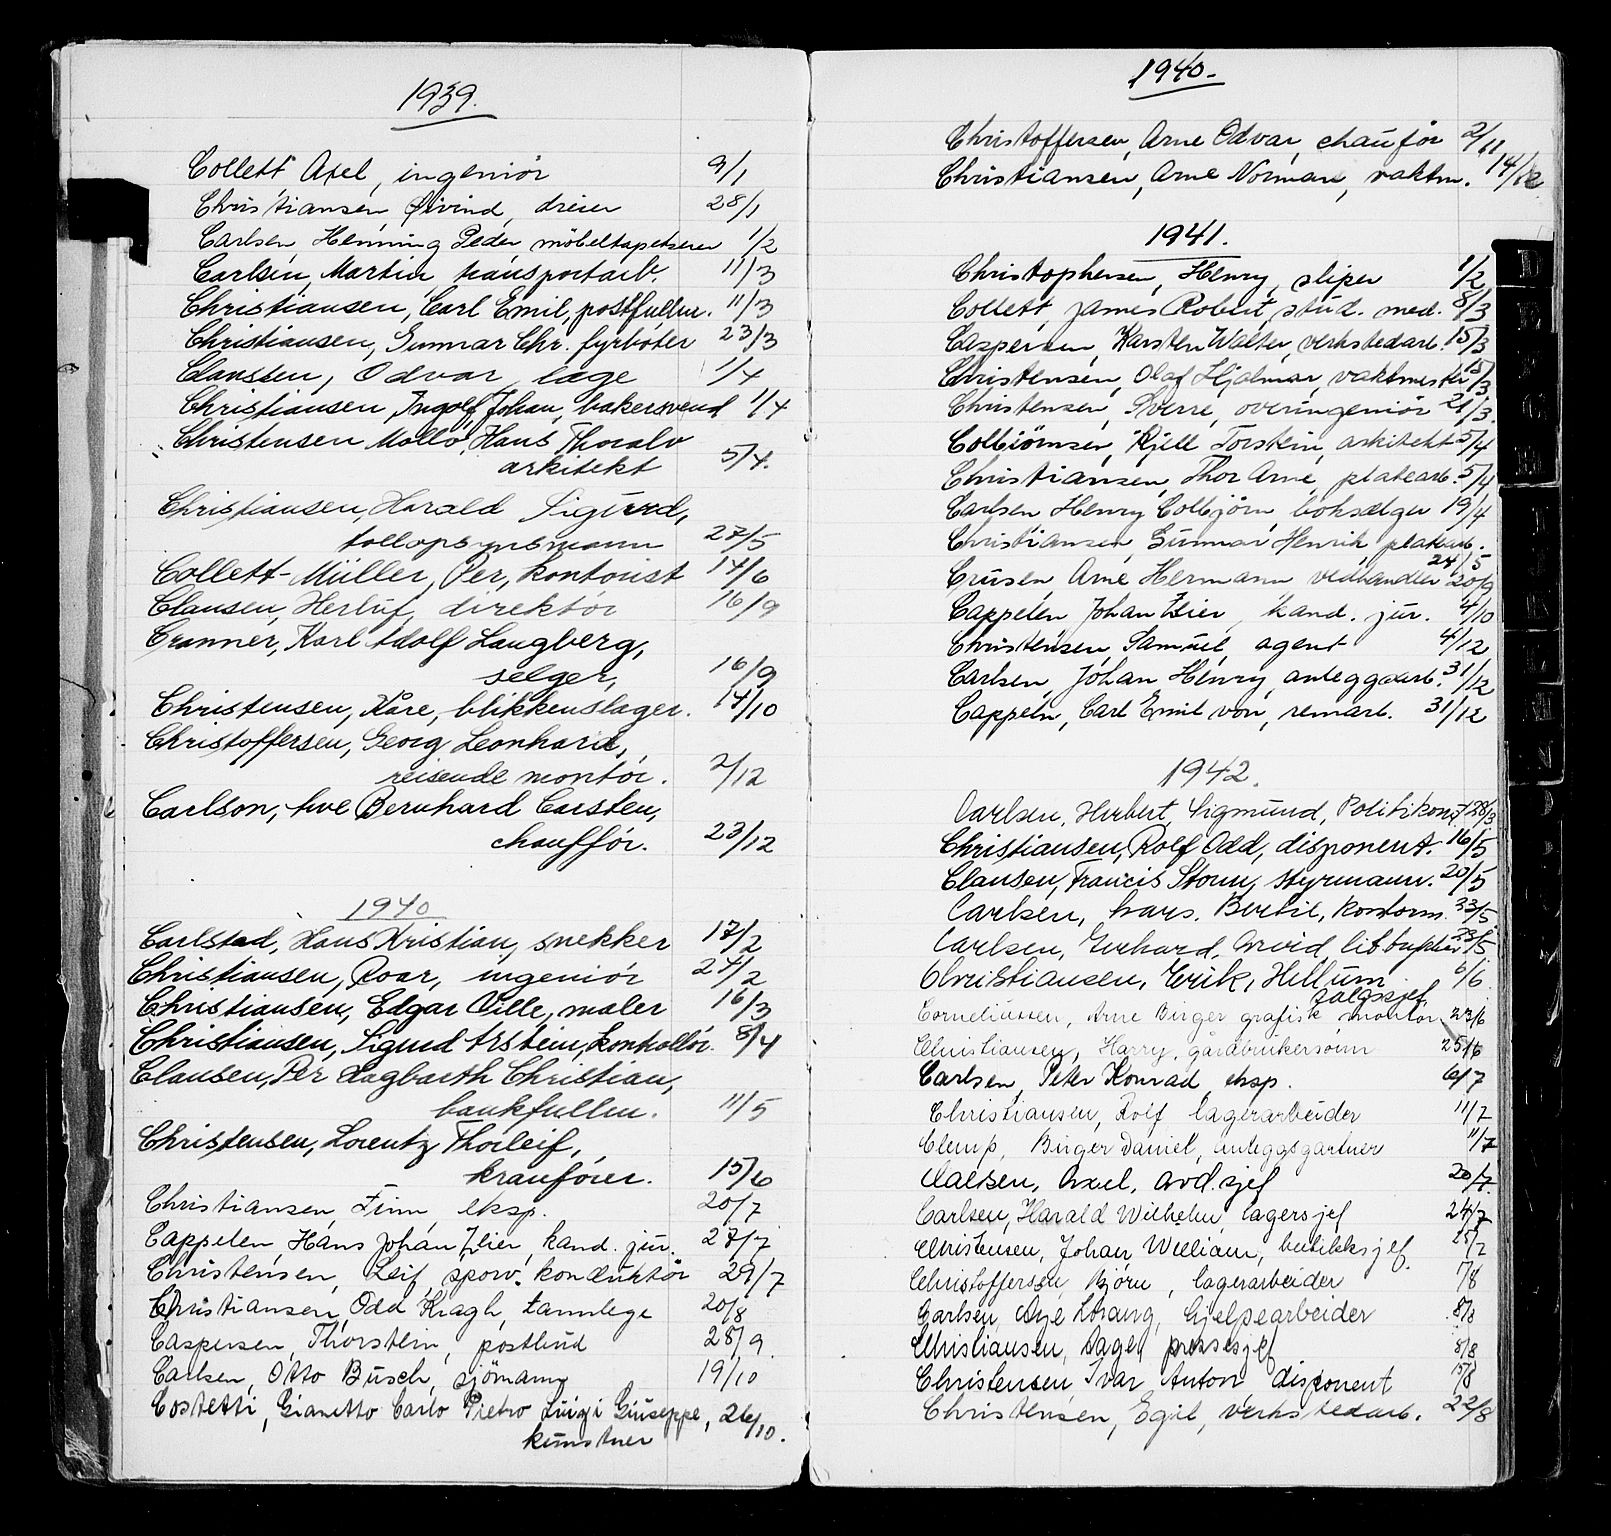 1939.
Collett Axel, ingeniør 9/1
Christiansen Øivind, dreier 28/1
Carlsen, Henning Peder møbeltapetserer 1/2
Carlsen, Martin transportarb. 11/3
Christiansen, Carl Emil, postfullm. 11/3
Christiansen, Gunnar Chr. fyrbøter 23/3
Claussen, Odvar, læge 1/4
Christiansen, Ingolf Johan, bakersvend 1/4
Christensen Mollø, Hans Thoralv
arkitekt 5/4.
Christiansen, Harald Sigurd,
tollopsynsmann 27/5
Collett-Müller, Per, kontorist 17/6
Clausen, Herluf, direktør 16/9
Cranner, Karl Adolf Langberg,
selger, 16/9
Christensen, Kåre, blikkenslager. 14/10
Christoffersen, Georg Leonhard,
reisende montør. 2/12
Carlson, Awe Bernhard Carsten,
chauffør. 23/12
1940
Carlstad, Hans Kristian, snekker 17/2
Christiansen, Roar, ingeniør 24/2
Christiansen, Edgar Wille, maler 16/3
Christiansen, Sigurd Arstein, kontrollør. 8/4
Clausen, Per Hagbarth Christian,
bankfullm. 11/5
Christensen, Lorentz Thorleif,
kranfører. 15/6
Christiansen, Finn, eksp. 20/7
Cappelen, Hans Johan Zeier, kand. jur. 27/7
Christensen, Leif, sporv. konduktør 29/7
Christiansen, Odd Kragh, tannlege 20/8
Caspersen, Thorstein, postbud 28/9.
Carlsen, Otto Busch, sjömann 19/10
Costetti, Gianetto Carlo Pietro Luigi Giuseppe, 26/10.
kunstner
1940.-
Christoffersen, Arne Odvar, chauför 2/11
Christiansen, Arne Norman, vaktm. 14/12
1941.
Christophersen, Henry, sliper 1/2
Collett, James Robert, stud. med. 8/3
Caspersen, Karsten Walter, verkstedarb. 15/3
Christensen, Olaf Hjalmar, vaktmester 15/3
Christensen, Sverre, overingeniör 21/3.
Colbiörnsen, Kjell Torstein, arkitekt 5/4
Christiansen, Thor Arne, platearb. 5/4
Carlsen Henry Colbjörn, boksælger 19/4
Christiansen, Gunnar Henrik platearb.
24/5
Crusen, Arne Hermann vedhandler 20/9
Cappelen Johan Zeier, kand. jur. 4/10
Christensen, Samuel, agent 4/12
Carlsen, Johan Henry, anleggsarb. 31/12
Cappeln, Carl Emil von, remarb. 31/12
1942.
Carlsen, Herbert, Sigmund, Politikonst. 28/3
Christiansen, Rolf Odd, disponent. 16/5
Clausen, Francis Stonn, styrmann. 20/5
Carlsen, Lars. Bertil, kontorm. 23/5
Carlsen, Gerhard, Arvid, 23/5
Christiansen, Erik, Hillum 6/6
salgssjef
Corneliussen, Arne Birger grafisk montör 23/6
Christiansen, Harry, gårdbrukersönn 25/6
Carlsen, Peter Konrad eksp. 6/7
Christiansen, Rolf lagerarbeider 11/7
Clemp, Birger Daniel, anleggsgartner 11/7
Carlsen, Axel, Avd. sjef 20/7.
Carlsen, Harald Wilhelm, lagersjef 24/7
Christensen, Johan William, butikksjef. 25/7
Christoffersen, Björn, lagerarbeider 1/8
Carlsen, Åge hjelpearbeider 8/8
Christiansen, Aage, pressesjef 8/8
Christensen, Ivar Anton, disponent 15/8
Christensen, Egil, verkstedarb. 22/8
D
E
F
G
H